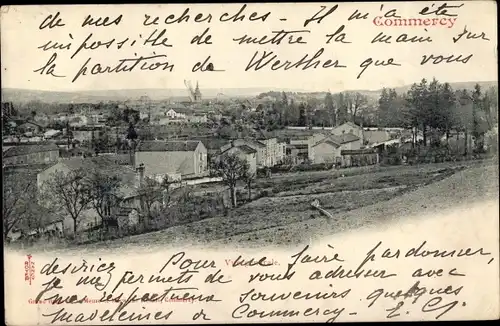 Commercy
de mes recherches — Il m'a été
impossible de mettre la main sur
la partition de Werther que vous
désiriez
Pour me faire pardonner,
je me permets de vous adresser avec
mes respectueux souvenirs quelques
Madeleines de Commercy.